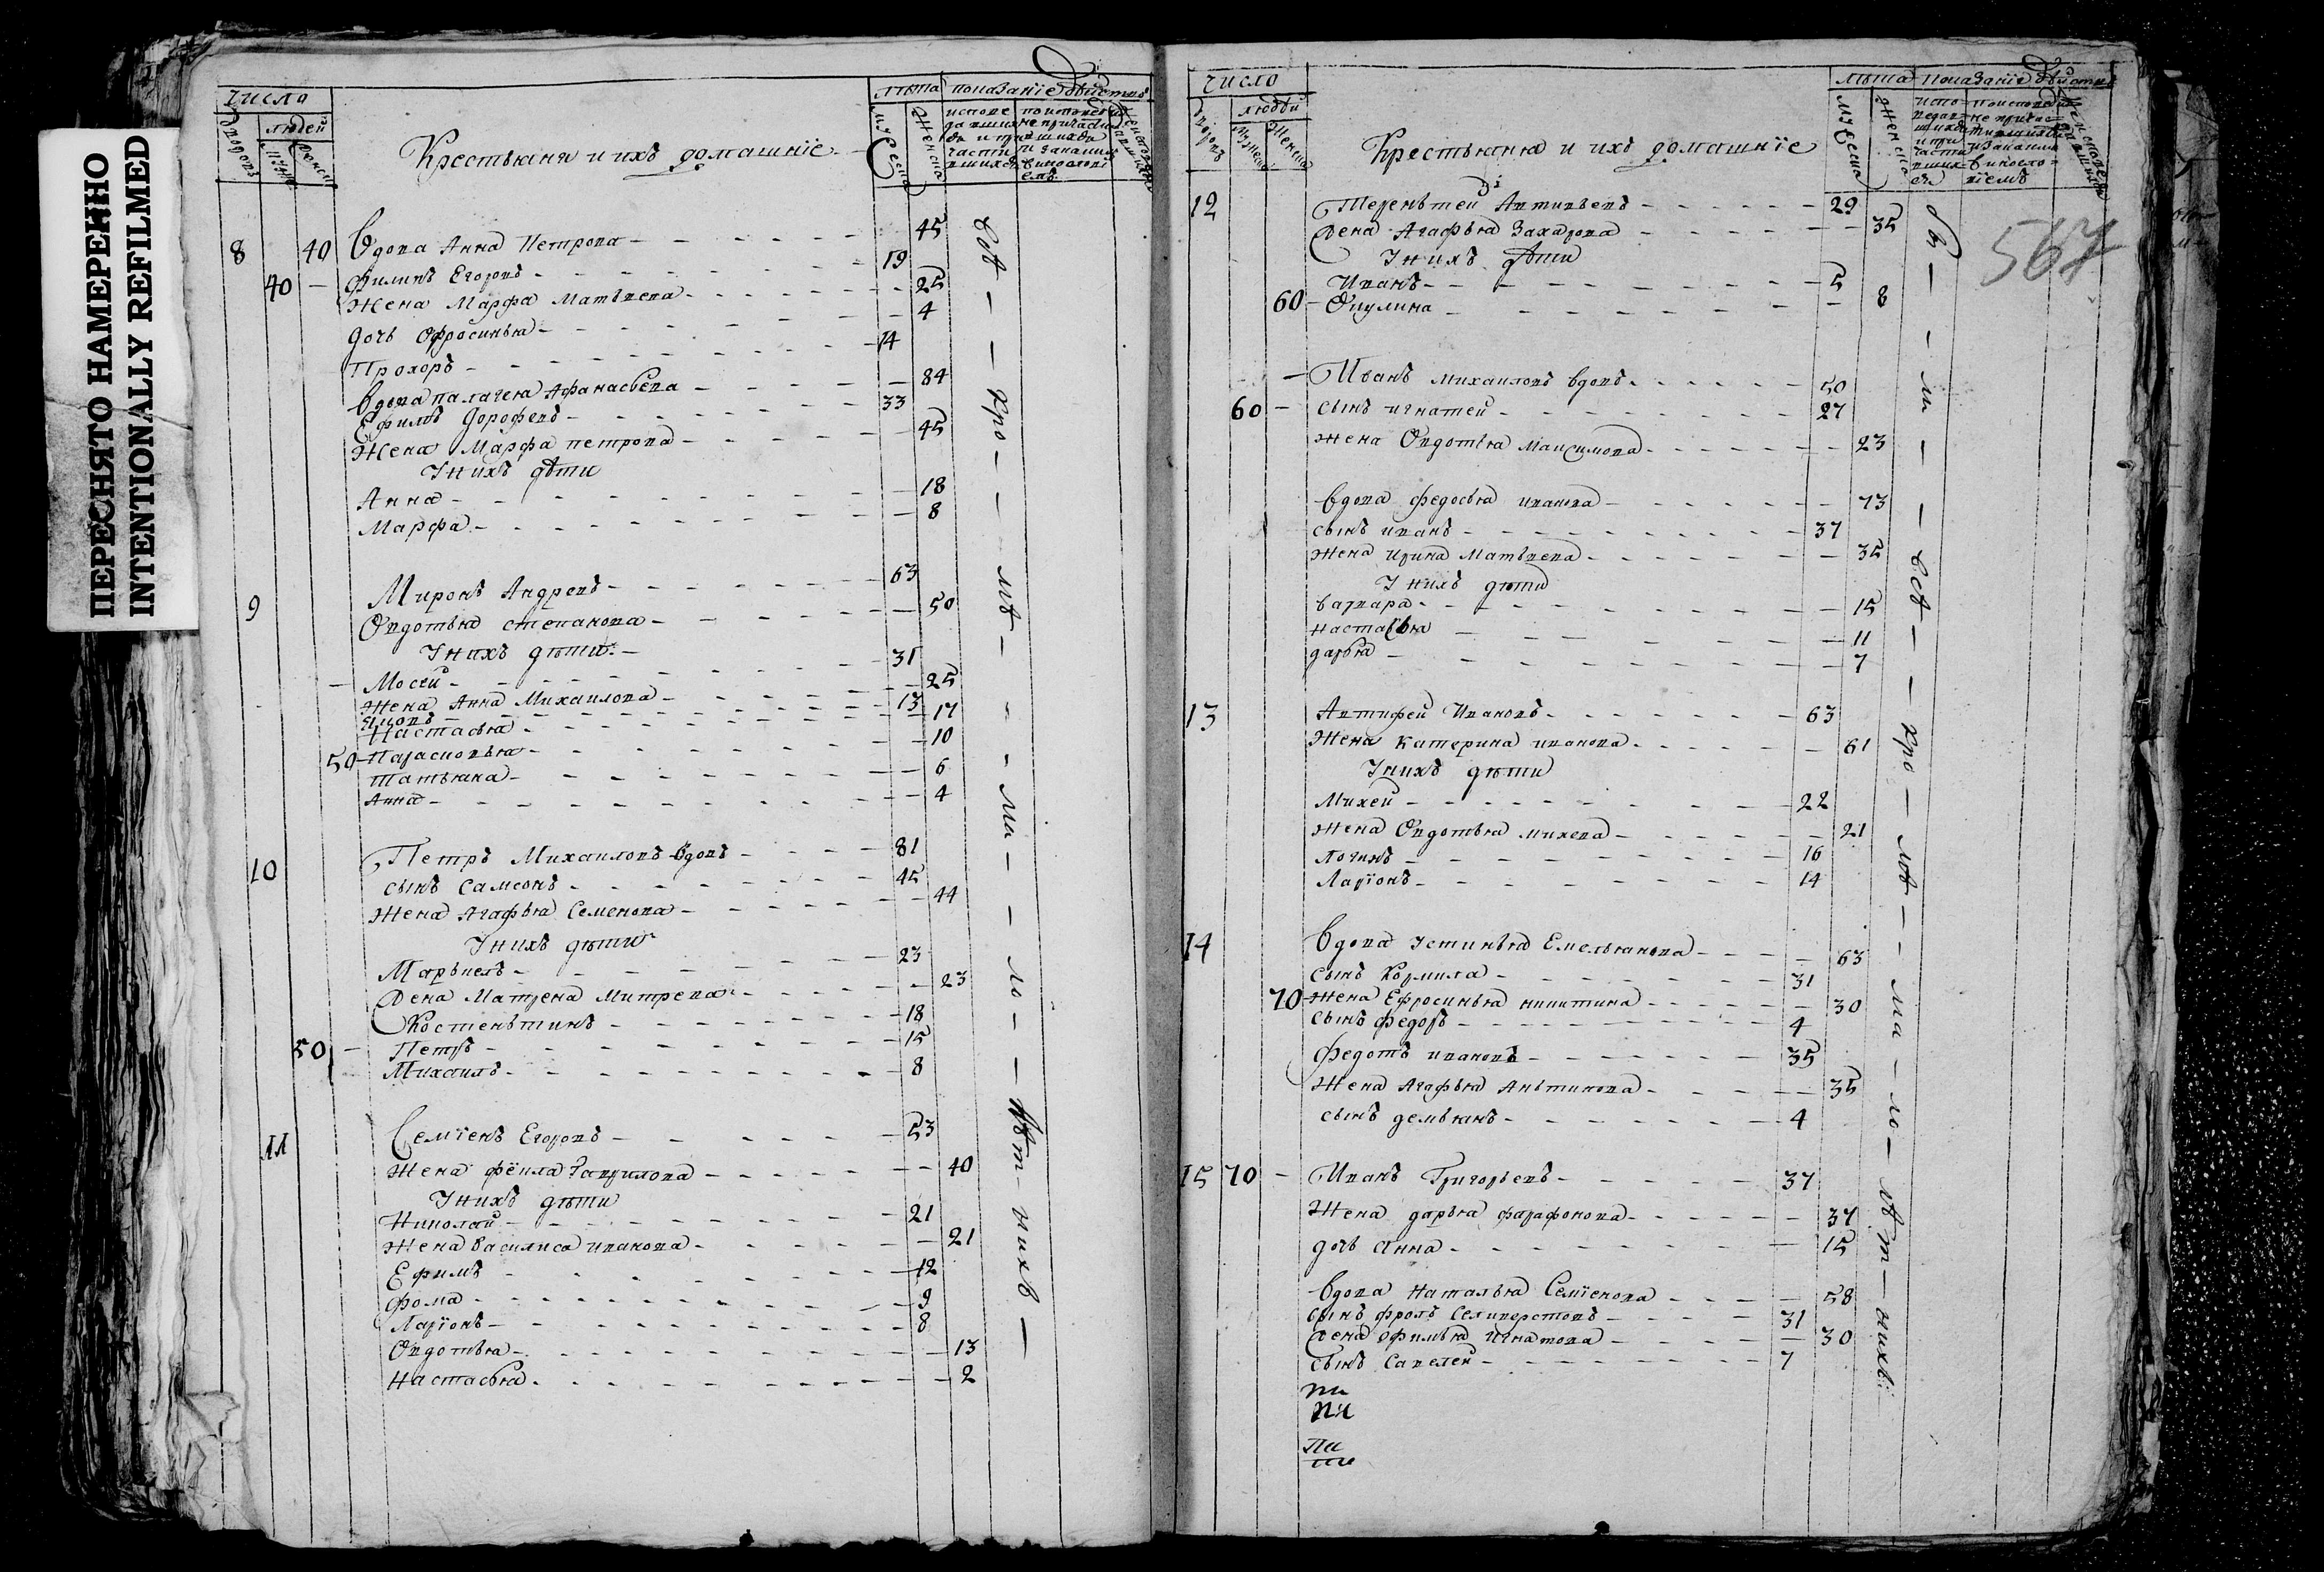 ПЕРЕСНЯТО НАМЕРЕННО
INTENTIONALLY REFILMED
число
дворовъ
людей
мужес
женск
Крестьяня и ихъ домашніе
лѣта
мужеска
женска
показаніе действъ
8 40 Вдова Анна Петрова 45
40 Филипъ Егоровъ 19
Жена Марфа Матьвеева 25
дочь Офросинья 4
Прохоръ 14
Вдова палагея Афанасьева 84
Ефимъ Дорофеевъ 33
Жена Марфа петрова 45
Уникъ дѣти
Анна 18
Марфа 8
9 Миронъ Андревъ 63
Овдотья степанова 50
Унихъ дети
Мосей 31
Жена Анна Михаилова 25
Яковъ 13
Настасья 17
50 Парасковья 10
татьяна 6
Анна 4
10 Петръ Михаиловъ вдовъ 81
сынъ самсонъ 45
Жена Агафья Семенова 44
Унихъ дети
Марькелъ 23
Жена Матрена Митрева 23
Костеньтинъ 18
50 Петръ 15
Михаилъ 8
11 Семіенъ Егоровъ 53
Жена фёкла Гаврилова 40
Унихъ дети
Николай 21
Жена василиса иванова 21
Ефимъ 12
фома 9
Ларіонъ 8
Овдотья 13
Настасья 2
всѣ — — кро — — мѣ — ма — ло — лѣт — нихъ —
число
дворовъ
людей
мужеска
женска
Крестьяня и ихъ домашніе
лѣта
мужеска
женска
показаніе действъ
567
12 Тереньтей Антипьевъ 29
Жена Агафья Захарова 35
Унихъ дѣти
Иванъ 5
60 Окулина 8
Иванъ михаиловъ вдовъ 50
60 сынъ игнатей 27
жена Овдотья Максимова 23
вдова федосья иванова 73
сынъ иванъ 37
жена ирина Матьвеева 35
Унихъ дети
варвара 15
настасья 11
дарья 7
13 Антифей Ивановъ 63
Жена катерина иванова 61
Унихъ дети
Михей 22
жена Овдотья михева 21
логинъ 16
Ларіонъ 14
14 Вдова Устинья Емельянова 63
сынъ Кормила 31
70 жена Ефросинья никитина 30
сынъ федоръ 4
федотъ ивановъ 35
Жена Агафья Аньтипова 35
сынъ демьянъ 4
15 70 Иванъ Григорьевъ 37
Жена дарья фарафонова 37
дочь Анна 15
Вдова наталья Семіенова 58
сынъ фролъ селиверстовъ 31
жена офимья игнатова 30
сынъ савелей 7
въ — — ѣ — — всѣ — — кро — мѣ — — ма — ло — лѣт — нихъ